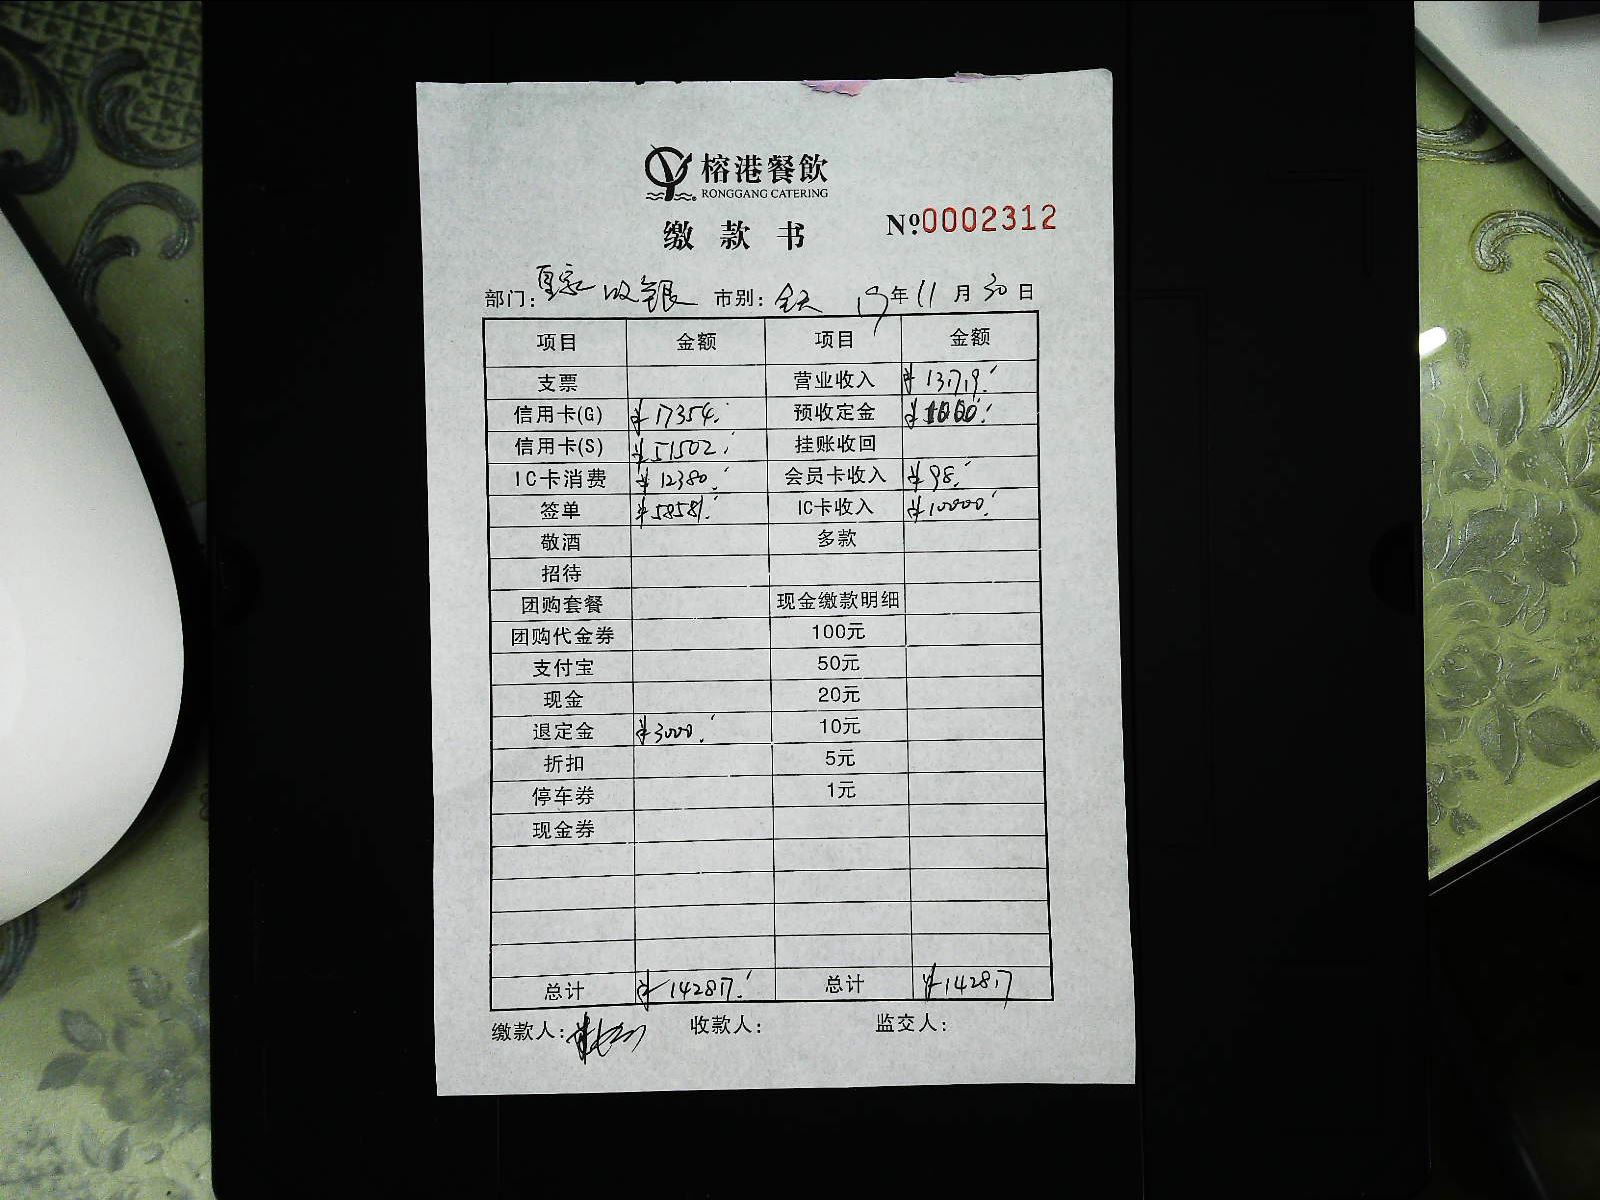 榕港餐飲
RONGGANG CATERING
缴款书 №0002312
部门: 皇家收银 市别: 全天 19年11月30日
项目 金额 项目 金额
支票 营业收入 ¥131719.
信用卡(G) ¥17354. 预收定金 ¥1000.
信用卡(S) ¥51502. 挂账收回
IC卡消费 ¥12380. 会员卡收入 ¥98.
签单 ¥58581. IC卡收入 ¥10000.
敬酒 多款
招待
团购套餐 现金缴款明细
团购代金券 100元
支付宝 50元
现金 20元
退定金 ¥3000. 10元
折扣 5元
停车券 1元
现金券
总计 ¥142817. 总计 ¥142817
缴款人: 收款人: 监交人: